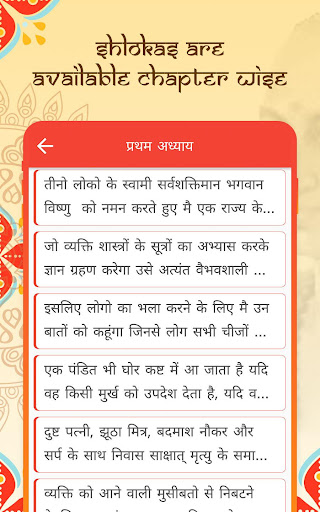 SHLOKAS ARE
AVAILABLE CHAPTER WISE
प्रथम अध्याय
तीनो लोको के स्वामी सर्वशक्तिमान भगवान
विष्णु को नमन करते हुए मै एक राज्य के...
जो व्यक्ति शास्त्रों के सूत्रों का अभ्यास करके
ज्ञान ग्रहण करेगा उसे अत्यंत वैभवशाली ...
इसलिए लोगो का भला करने के लिए मै उन
बातों को कहूंगा जिनसे लोग सभी चीजों ...
एक पंडित भी घोर कष्ट में आ जाता है यदि
वह किसी मुर्ख को उपदेश देता है, यदि व...
दुष्ट पत्नी, झूठा मित्र, बदमाश नौकर और
सर्प के साथ निवास साक्षात् मृत्यु के समा...
व्यक्ति को आने वाली मुसीबतो से निबटने